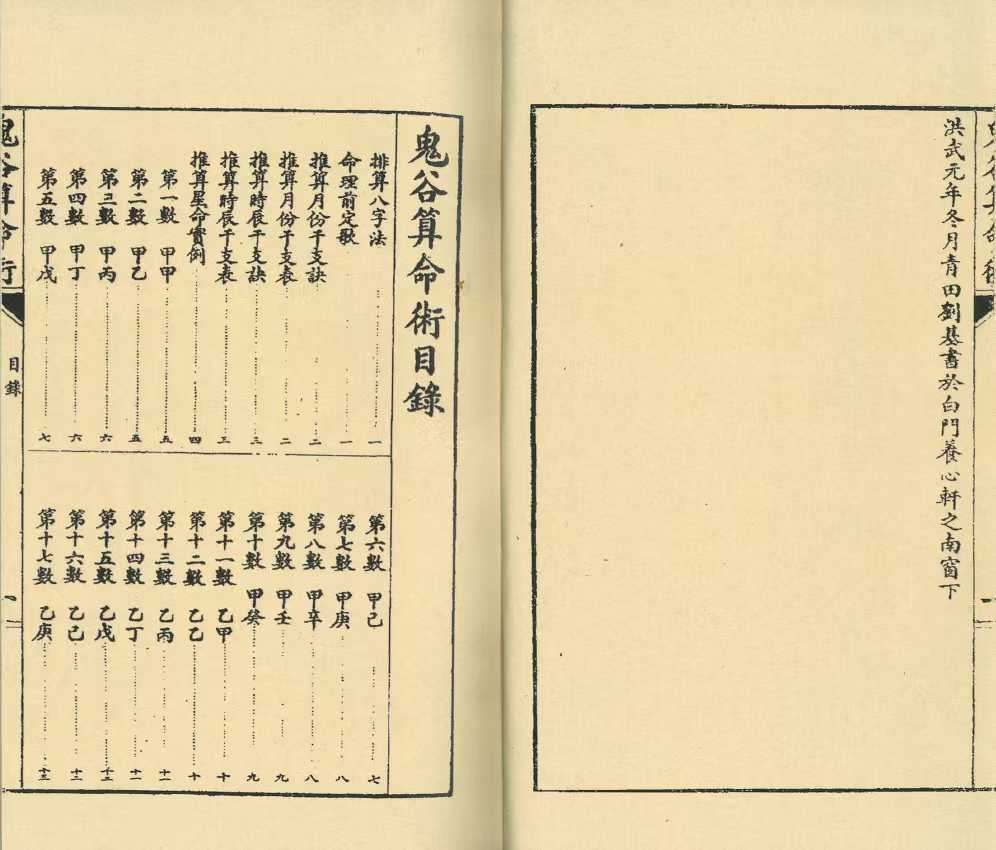 洪武元年冬月青田劉基書於白門養心軒之南窗下
鬼谷算命術目錄
排算八字法 一
命理前定歌 一
推算月份干支訣 二
推算月份干支表 二
推算時辰干支訣 三
推算時辰干支表 三
推算星命實例 四
第一數 甲甲 五
第二數 甲乙 五
第三數 甲丙 六
第四數 甲丁 六
第五數 甲戊 七
第六數 甲己 七
第七數 甲庚 八
第八數 甲辛 八
第九數 甲壬 九
第十數 甲癸 九
第十一數 乙甲 十
第十二數 乙乙 十
第十三數 乙丙 十一
第十四數 乙丁 十一
第十五數 乙戊 十二
第十六數 乙己 十二
第十七數 乙庚 十三
鬼谷算命術
目錄
一